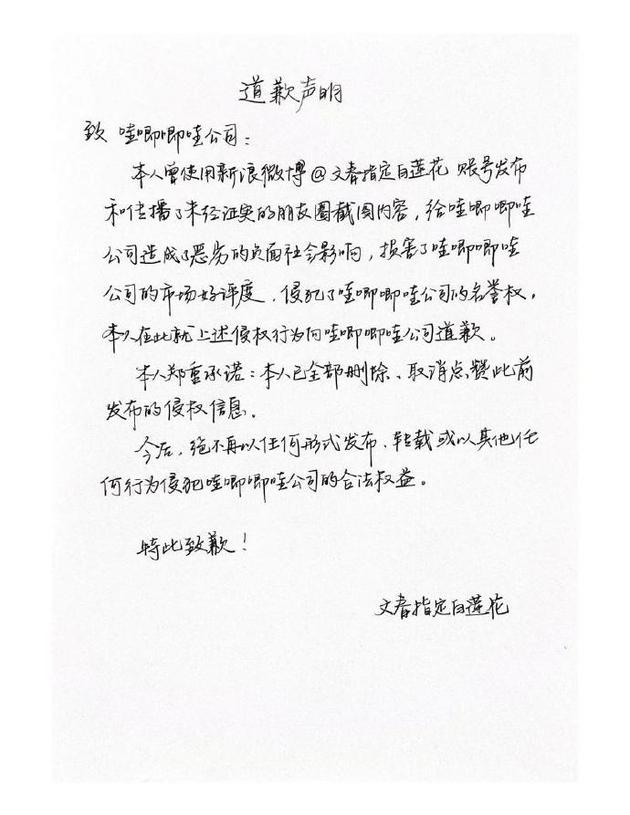 道歉声明
致 哇唧唧哇公司：
本人曾使用新浪微博@文春指定白莲花 账号发布
和传播了未经证实的朋友圈截图内容，给哇唧唧哇
公司造成了恶劣的负面社会影响，损害了哇唧唧哇
公司的市场好评度，侵犯了哇唧唧哇公司的名誉权，
本人在此就上述侵权行为向哇唧唧哇公司道歉。
本人郑重承诺：本人已全部删除、取消点赞此前
发布的侵权信息。
今后，绝不再以任何形式发布、转载或以其他任
何行为侵犯哇唧唧哇公司的合法权益。
特此致歉！
文春指定白莲花